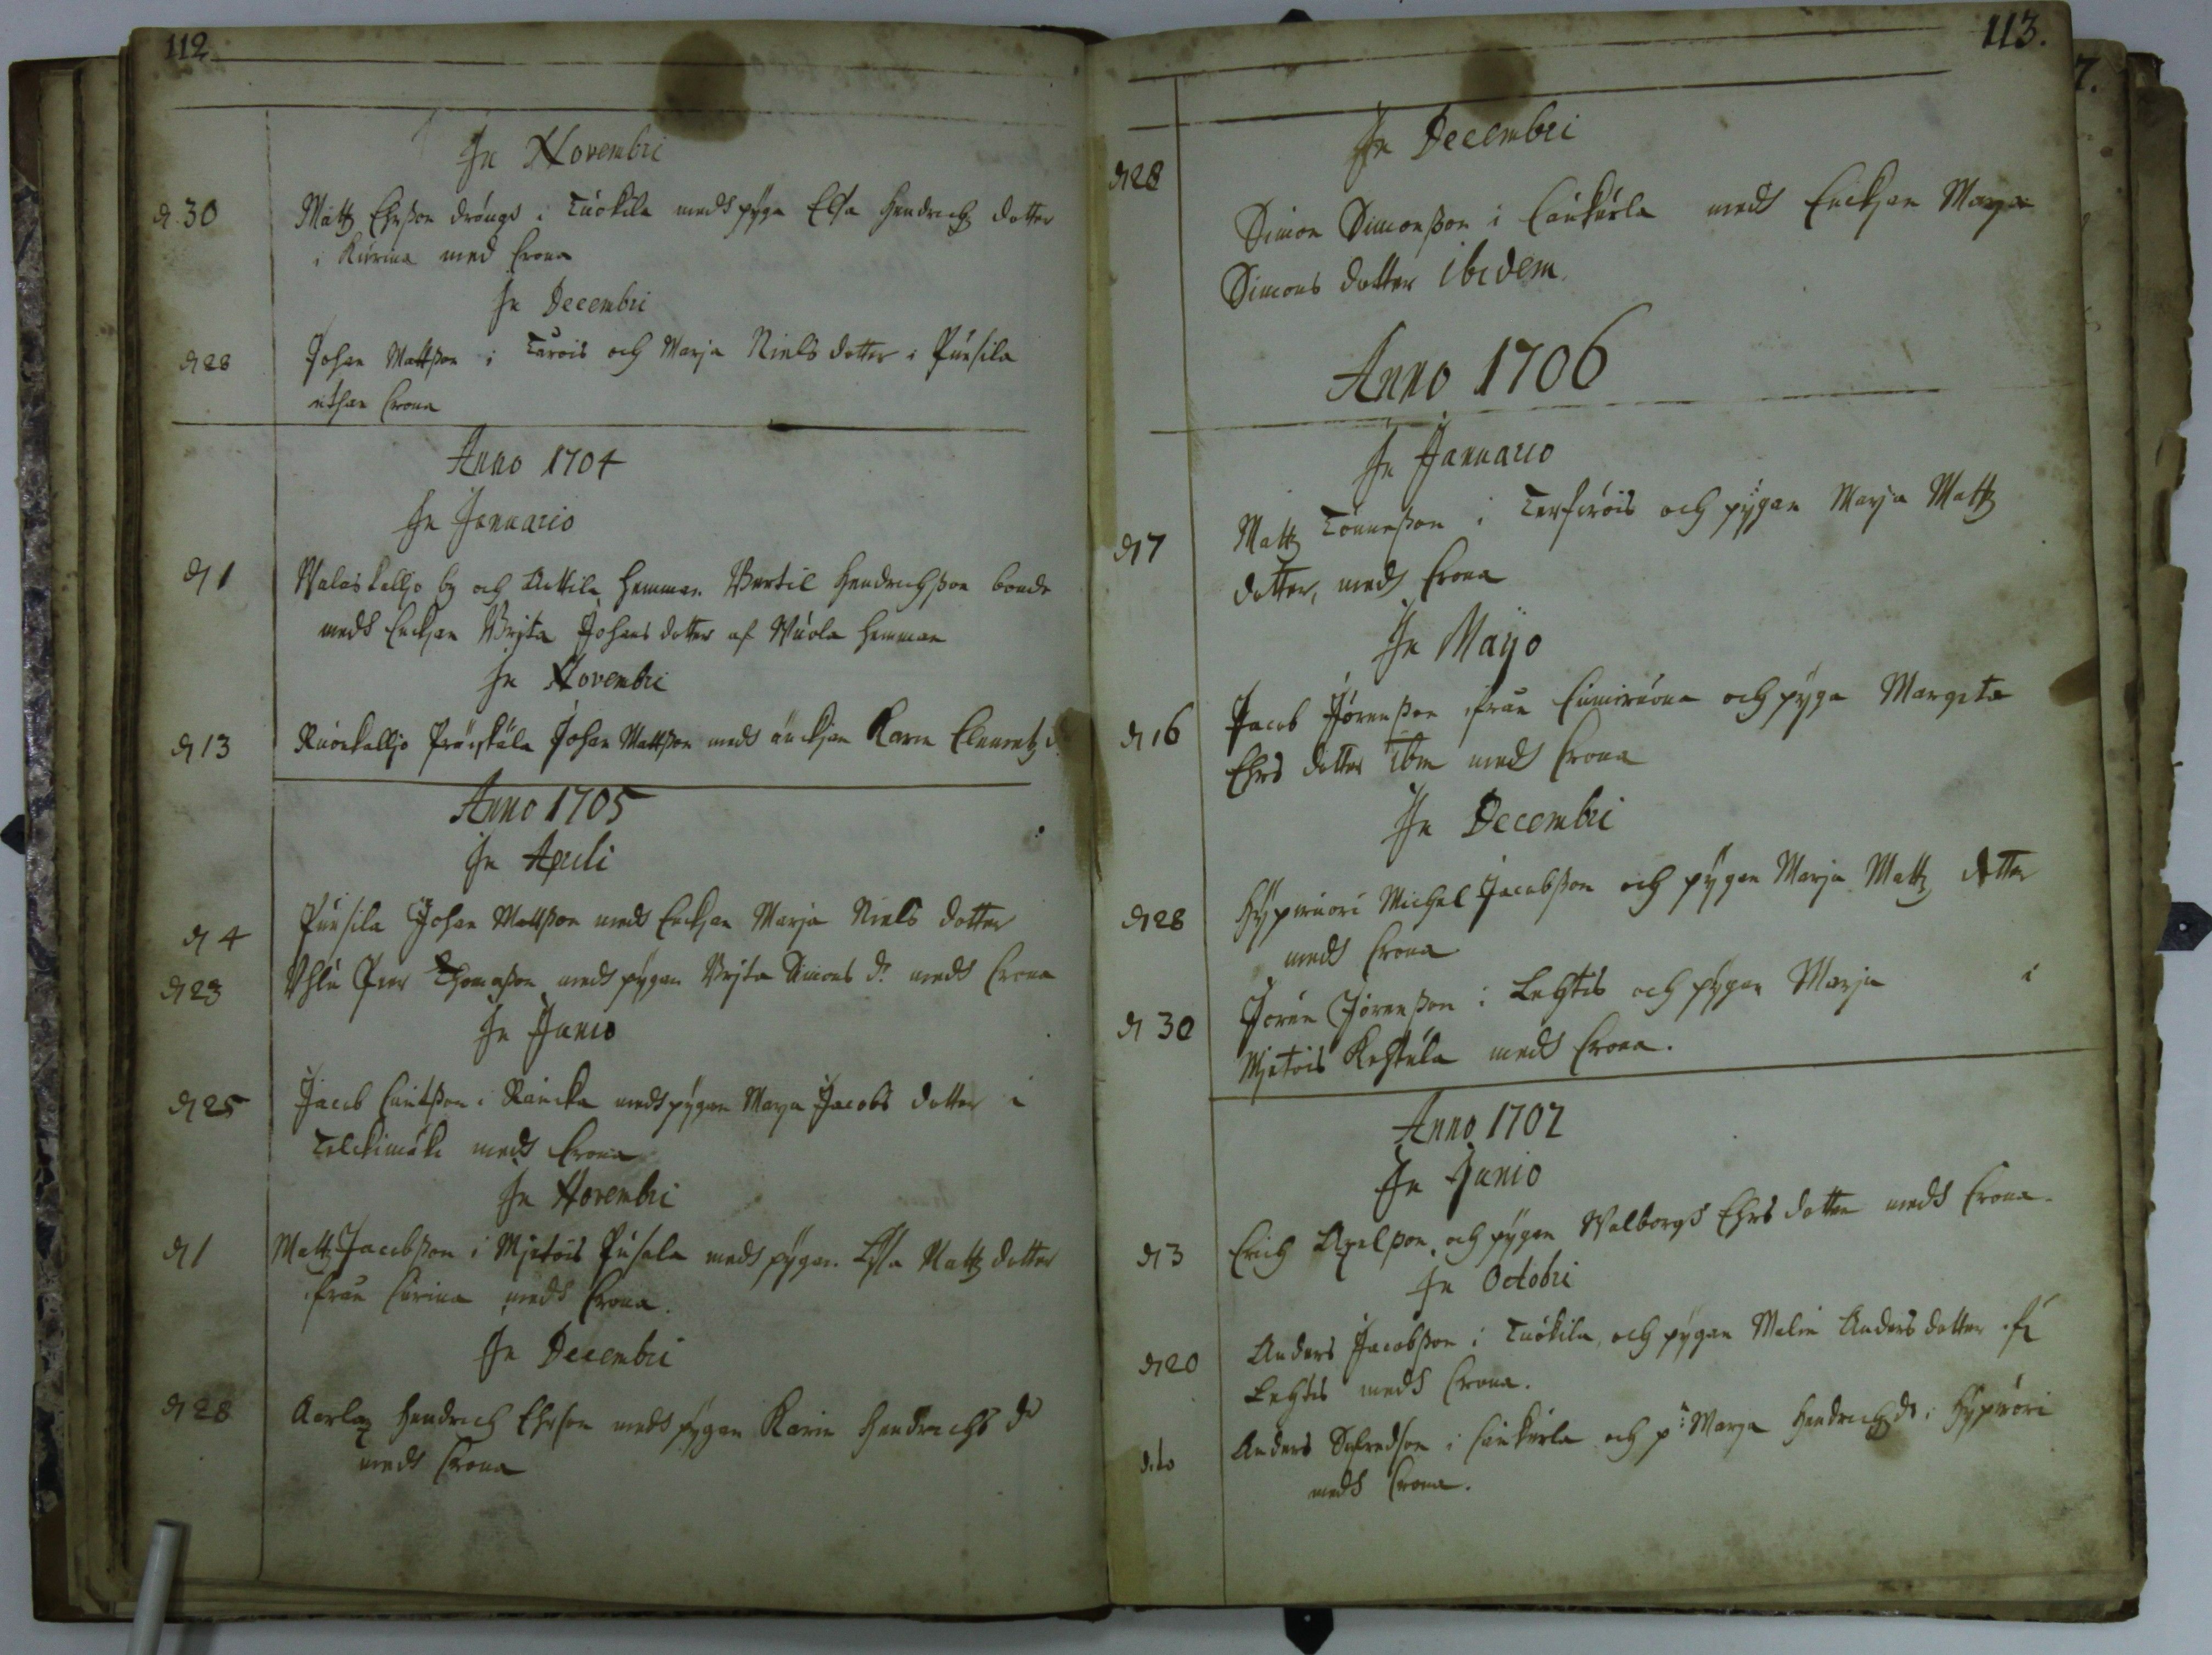 112
In Novembri
d 30 Matts Ehrßon dräng i Tuokila med pyga Elsa Hendrichs dotter
i Kurina med Crona
In Decembri
d 28 Johan Mattßon i Turois och Marja Niels dotter i Pursila
uthan Crona
Anno 1704
In Januario
d 1 Walaskalljo by och Hemman Bertil Hendrichßon bonde
meds Enckjan Brita Johans dotter af Wuola Hemman
In Novembri
d 13 Johan Mattßon meds änckjan Karin Clemets d.
Anno 1705
In Aprili
d 4 Pursila Johan Mattßon meds Enckjan Marja Niels dotter
d 23 Uhlu Pver Thomaßon meds pygan Brita Simons dr meds Crona
In Junio
d 25 Jacob Cnutßon i Raucka meds pygan Marja Jacobs dotter i
Talckimäki meds Crona
In Novembri
d 1 Matts Jacobßon i Mjetois Pusala meds pygan Elsa Matts dotter
från Curina meds Crona.
In Decembri
d 28 Hendrich Ehrson meds pygan Karin Hendrichs dr
meds Crona
113.
In Decembri
d 28
Simon Simonßon i Caukurla meds Enckjan Marja
Simons dotter ibidem.
Anno 1706
In Januario
d 17 Matts Tönneßon i och pygan Marja Matts
dotter, meds Crona
In Majo
d 16 Jacob Jörenßon från och pyga Margeta
Ehrs dotter ibm meds Crona
In Decembri
d 28 Hypwuori Michel Jacobßon och pygan Marja Matts dotter
meds Crona
d 30 Jören Jörenßon i Lehtis och pygan Marja i
Mjetois Kestula meds Crona.
Anno 1707
In Junio
d 3 Erich Axelßon och pygan Walborgs Ehrs dotter meds Crona.
In Octobri
d 20 Anders Jacobßon i Tuokila, och pygan Malin Anders dotter
Lehtis meds Crona.
dito Anders Sigfredson i Caukurla och p: Marja Hendrichs dr i Hypwori
meds Crona.
7.